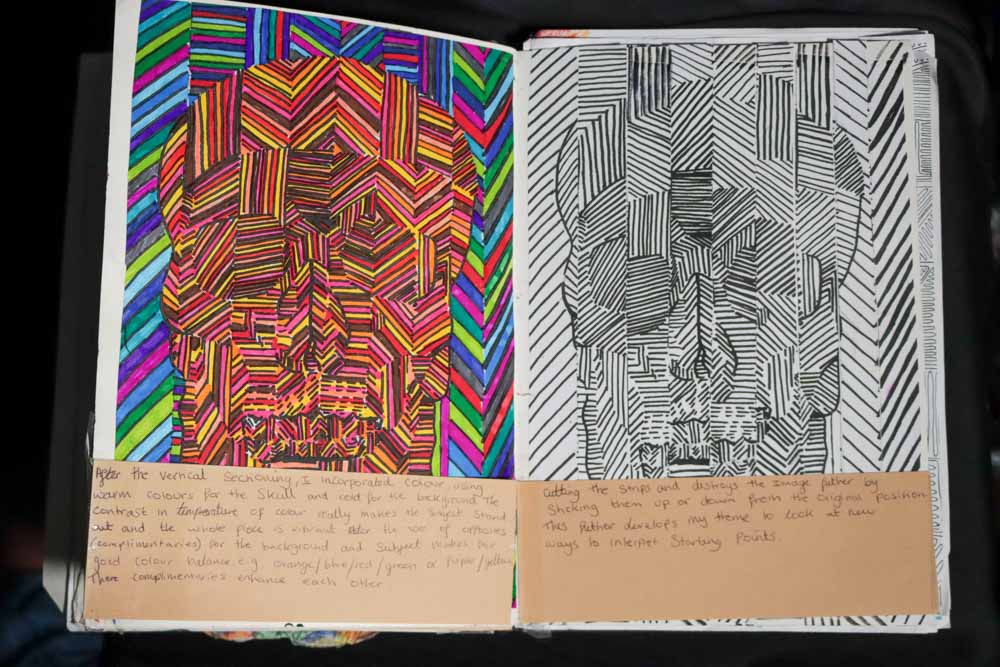 After the vertical Sechouing, I incorporated colour using
warm colours for the Skull and cold for the background. The
contrast in temperature of colour really makes the Subject Stand
out and the whole piece is vibrant. the use of opposites
(complimentaries) for the background and Subject makes for
good colour balance. e.g. orange/blue/red/green or purple/yellow
There complimentaries enhance each other
Cutting the Strips and distroys the Image futher by
Sticking them up or down from the original position.
This futher develops my theme to look at new
ways to interpret Starting Points.